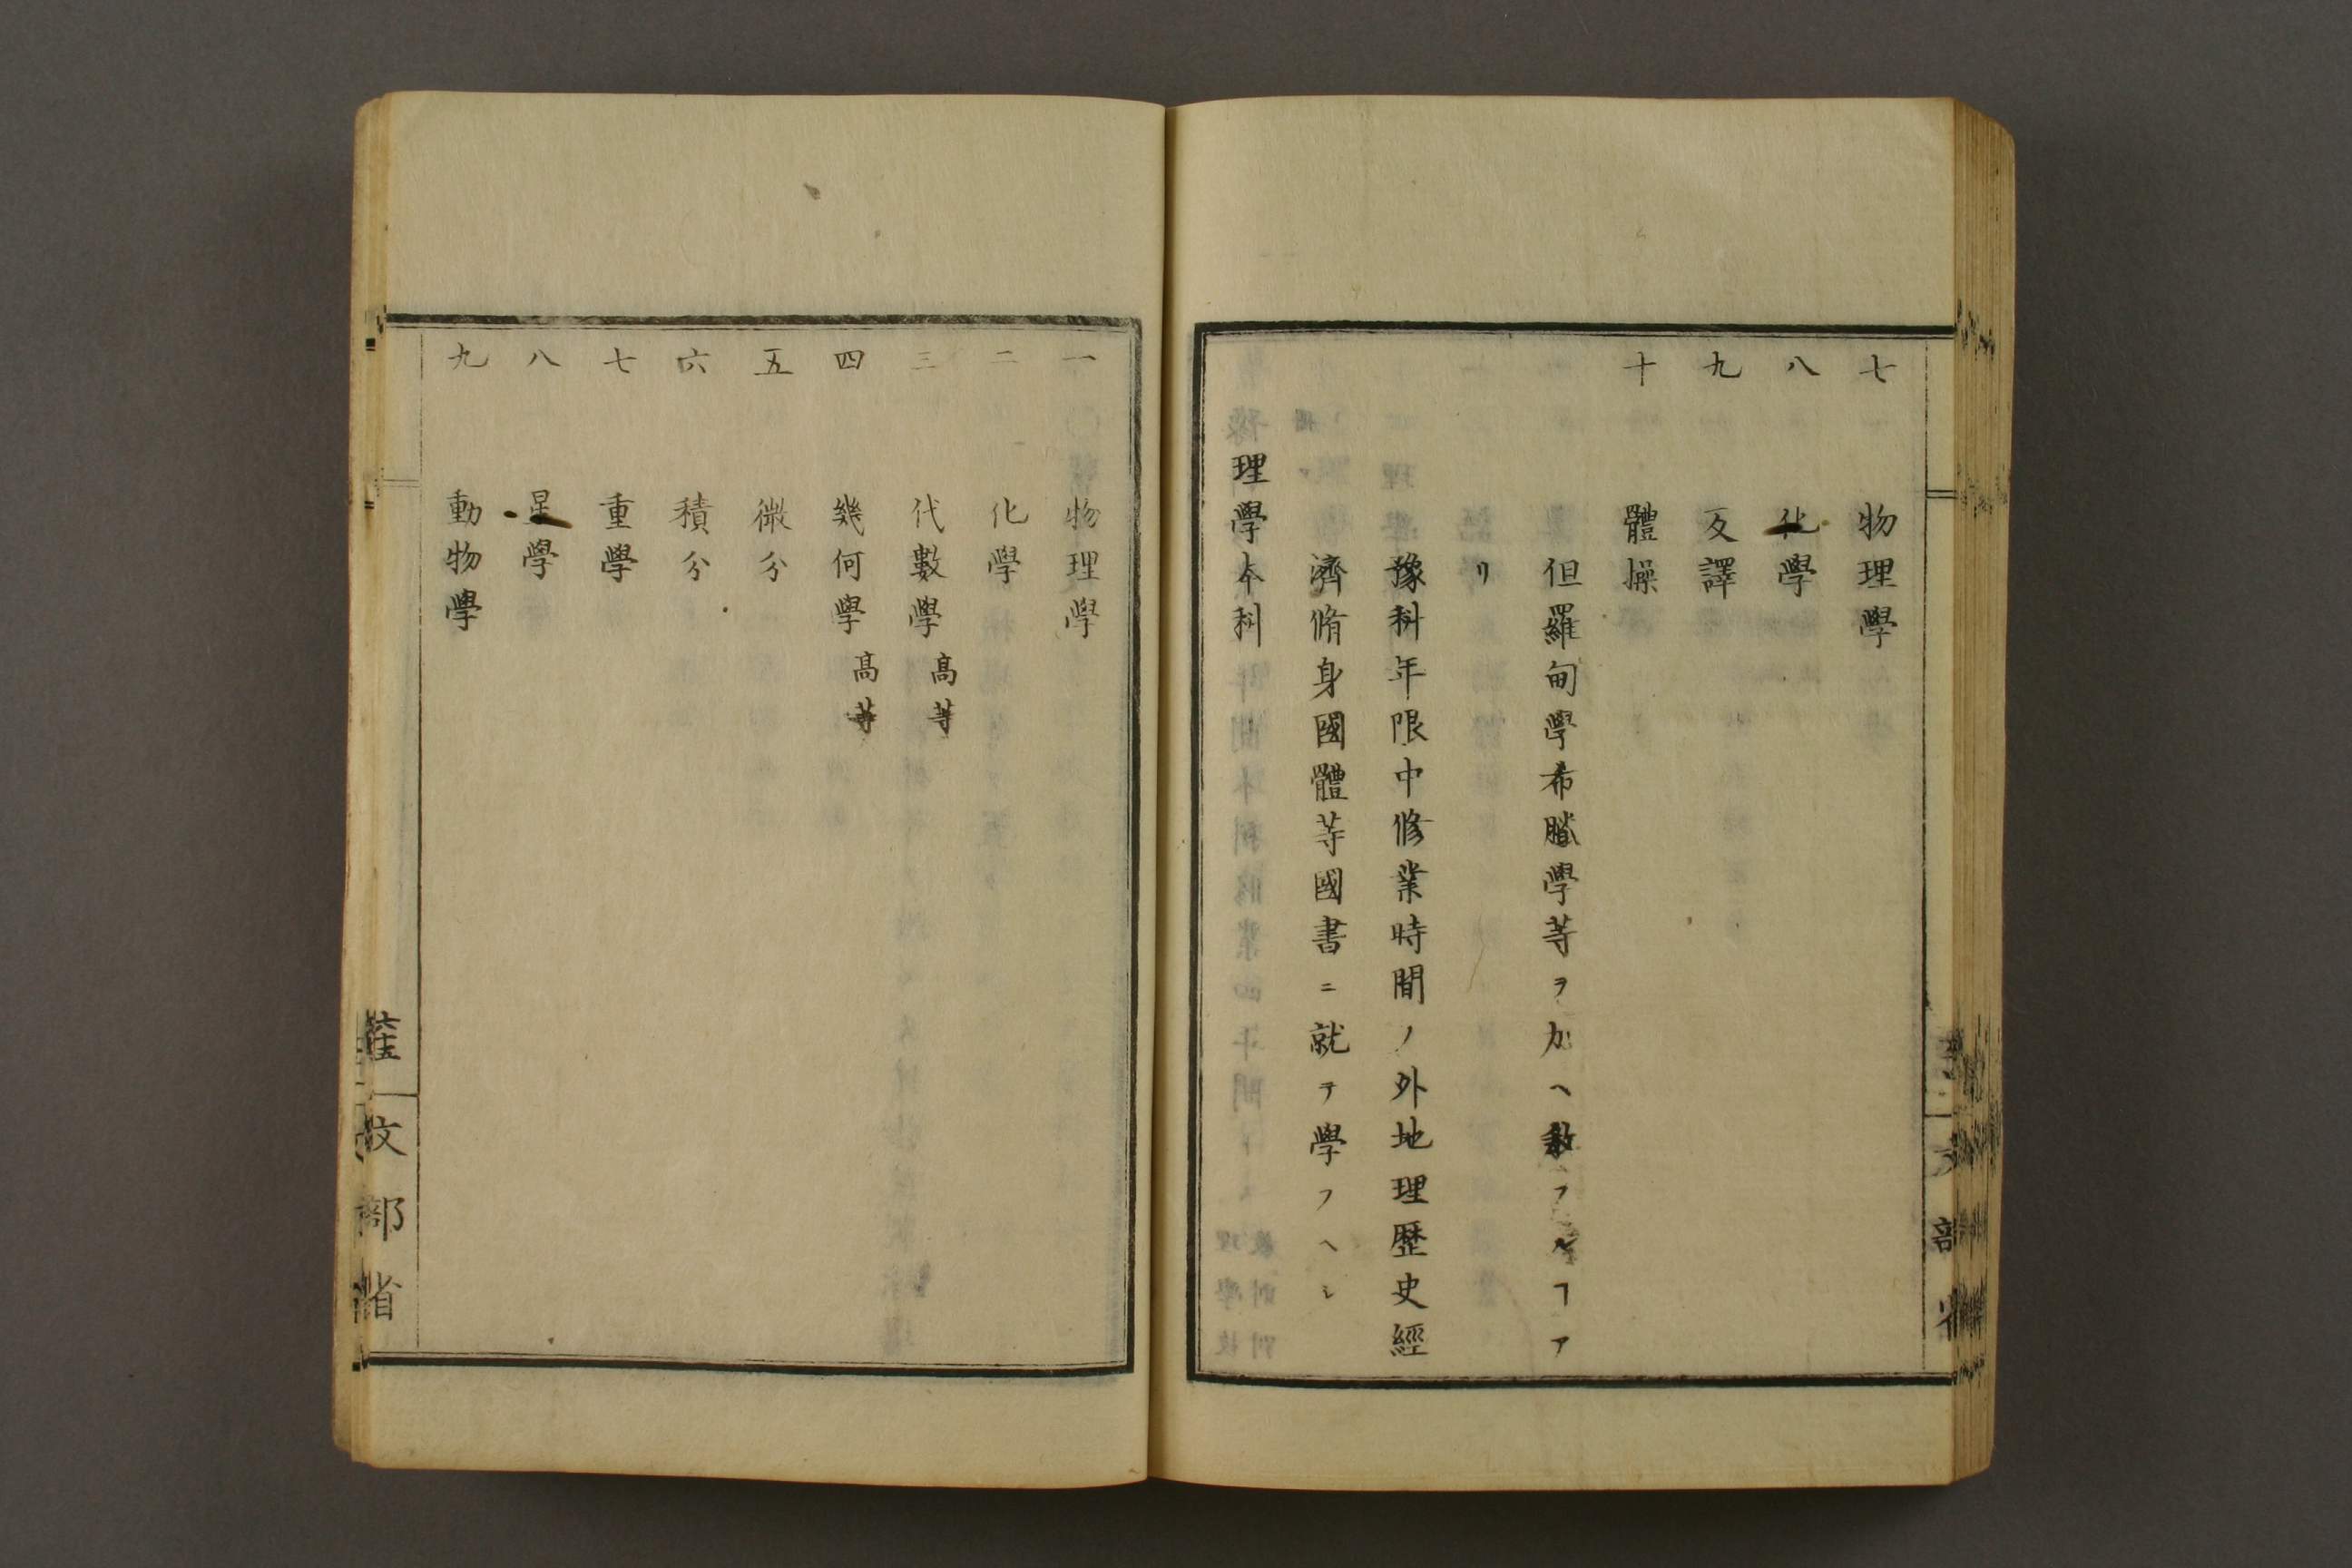 七 物理學
八 化學
九 反譯
十 體操
但羅甸學希臘學等ヲ加ヘ敎フルヿア
リ
豫科年限中修業時間ノ外地理歴史經
濟脩身國體等國書ニ就テ學フヘシ
理學本科
文部省
一 物理學
二 化學
三 代數學 高等
四 幾何學 高等
五 微分
六 積分
七 重學
八 星學
九 動物學
文部省